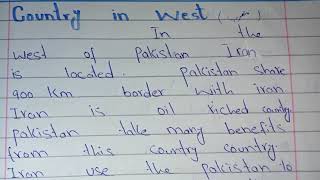 Country in West (مغرب)
In the
West of Pakistan Iran
is located. Pakistan share
900 Km border with iron
Iran is oil riched country
pakistan take many benefits
from this country country.
Iran use the pakistan to